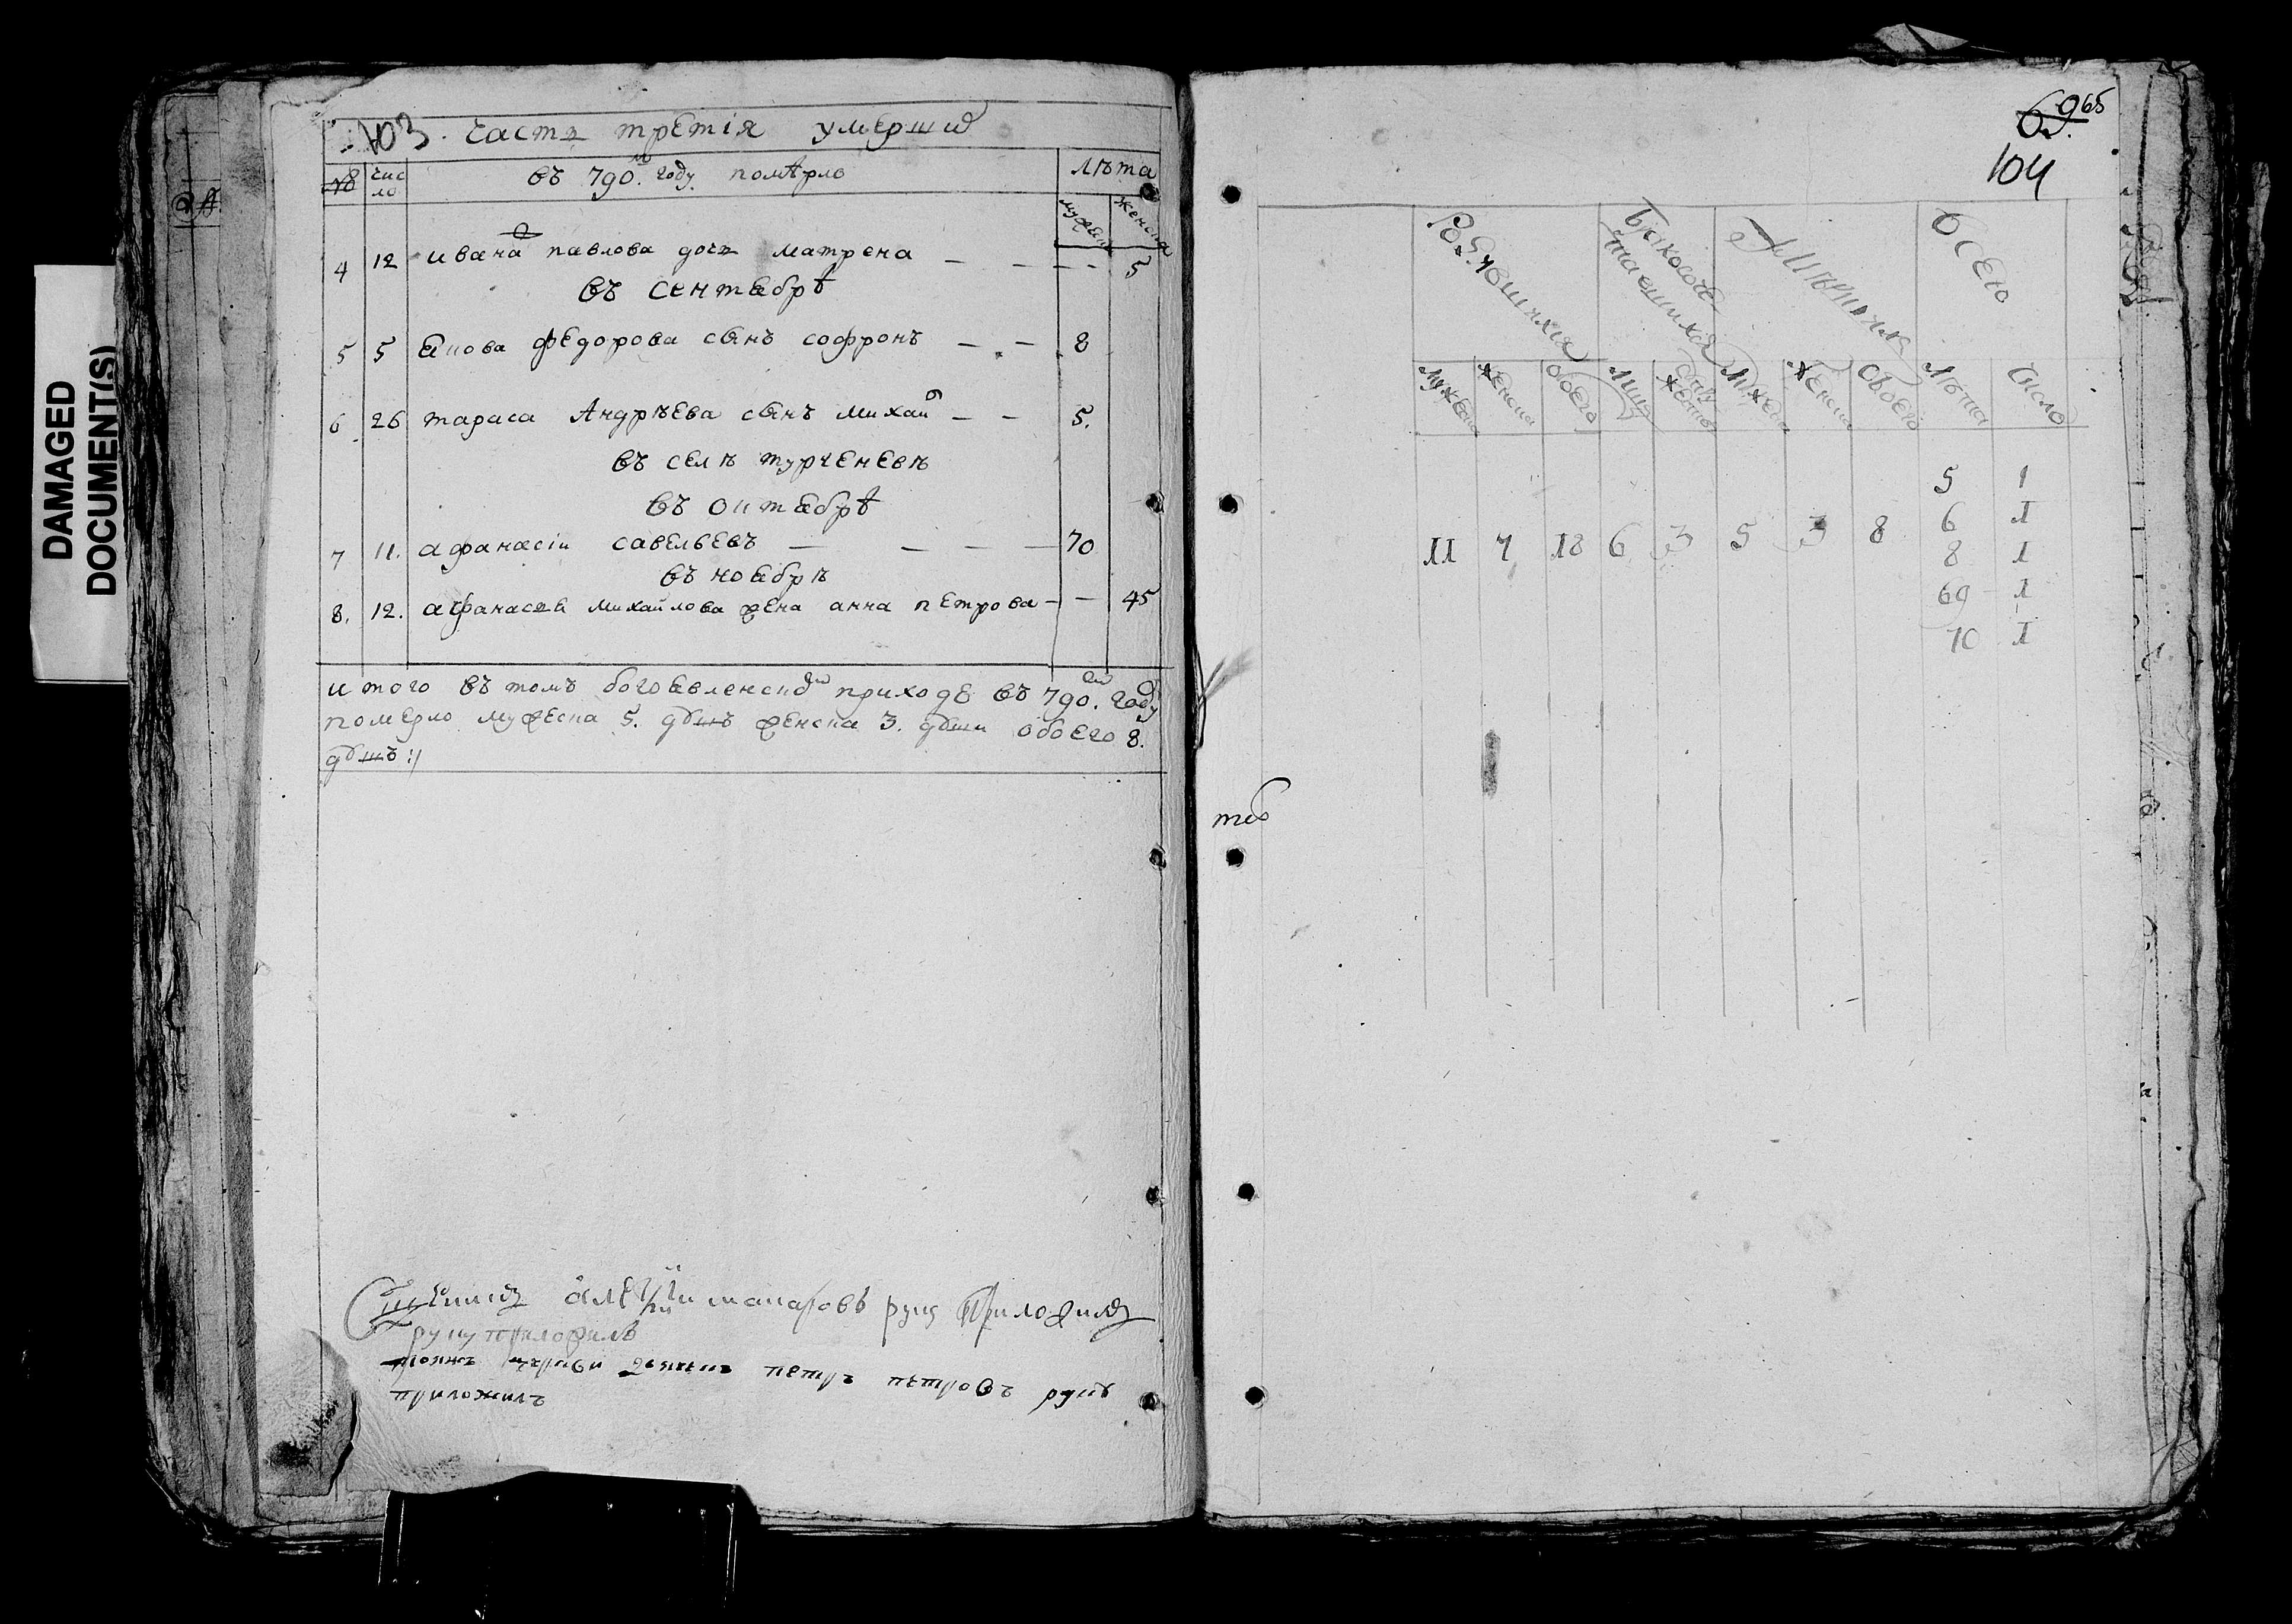 DAMAGED
DOCUMENT(S)
103. часть третія умерши
№ чис ло въ 790м году померло лѣта
мужеска женска
4 12 ивана павлова дочь матрена — — — 5
въ сентябрѣ
5 5 якова федорова сынъ софронъ — — 8
6 26 тараса Андрѣева сынъ михай — — 5.
въ селѣ турченевѣ
въ октябрѣ
7 11. афанасіи савельевъ — — — — 70
въ ноябрѣ
8. 12. афанасья михайлова жена анна петрова — — 45
итого въ томъ богоявленском приходе въ 790. году
померло мужеска 5. душъ женска 3. души обоего 8.
душъ :/
алеѯѣи макаровъ руку приложилъ
руку приложилъ
петръ петровъ руку
приложилъ
965
69.
104
Родившихся Бракосоче тавшихся Всего
мужеска женска обоего мужеска женска обоего лѣта число
11 7 18 6 3 5 3 8
5 1
6 1
8 1
69 1
70 1